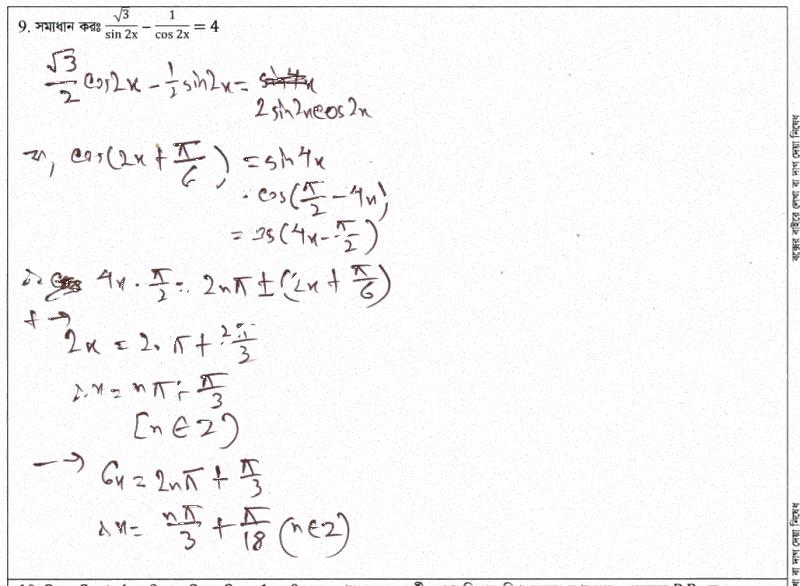 9. সমাধান করঃ √3/sin 2x − 1/cos 2x = 4
√3/2 cos2x − 1/2 sin2x =
2 sin2x cos2x
বা, cos(2x + π/6) = sin4x
cos(π/2 − 4x)
= cos(4x − π/2)
∴ 4x - π/2 = 2nπ ± (2x + π/6)
+ →
2x = 2nπ + 2π/3
∴ x = nπ + π/3
[n ∈ Z)
− → 6x = 2nπ + π/3
∴ x = nπ/3 + π/18 (n ∈ Z)
বক্সের বাইরে লেখা বা দাগ দেয়া নিষেধ
বা দাগ দেয়া নিষেধ